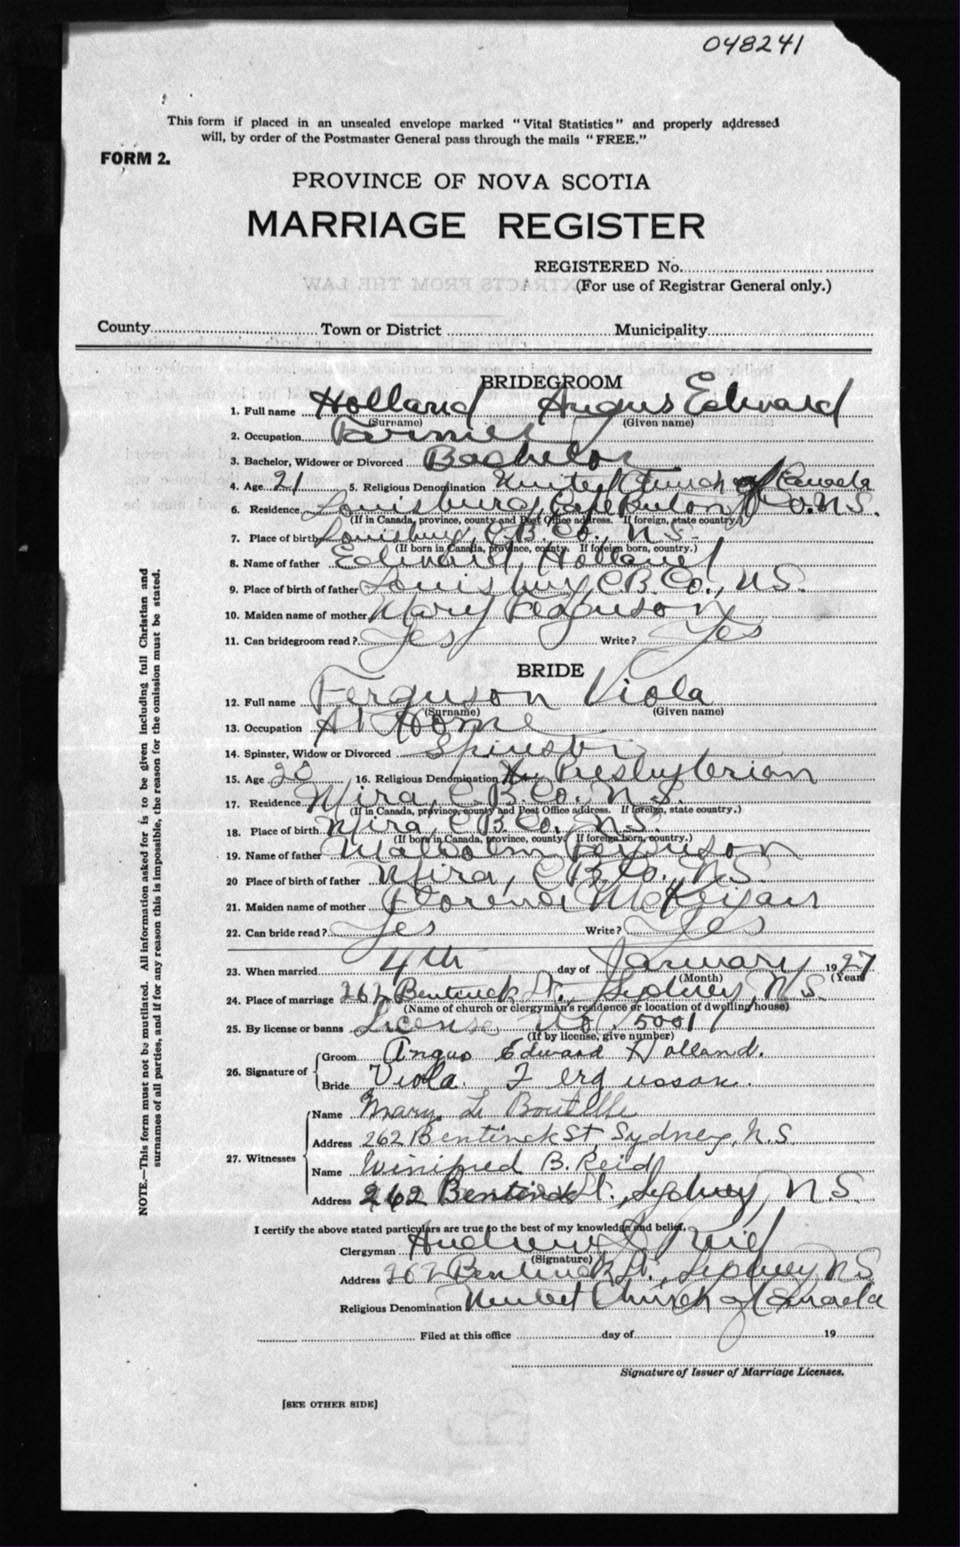 048241
This form if placed in an unsealed envelope marked "Vital Statistics" and properly addressed
will, by order of the Postmaster General pass through the mails "FREE."
FORM 2.
PROVINCE OF NOVA SCOTIA
MARRIAGE REGISTER
REGISTERED No.
(For use of Registrar General only.)
EXTRACTS FROM THE LAW
County Town or District Municipality
BRIDEGROOM
1. Full name Holland Angus Edward
(Surname) (Given name)
2. Occupation Farmer
3. Bachelor, Widower or Divorced Bachelor
4. Age 21 5. Religious Denomination United Church of Canada
6. Residence Louisburg, Cape Breton Co. N.S.
(If in Canada, province, county and Post Office address. If foreign, state country.)
7. Place of birth Louisburg, C.B. Co., N.S.
(If born in Canada, province, county. If foreign born, country.)
8. Name of father Edward Holland
9. Place of birth of father Louisburg C.B. Co., N.S.
10. Maiden name of mother Mary Ferguson
11. Can bridegroom read? Yes Write? Yes
BRIDE
12. Full name Ferguson Viola
(Surname) (Given name)
13. Occupation At Home
14. Spinster, Widow or Divorced Spinster
15. Age 20 16. Religious Denomination Presbyterian
17. Residence Mira, C.B. Co. N.S.
(If in Canada, province, county and Post Office address. If foreign, state country.)
18. Place of birth Mira, C.B. Co. N.S.
(If born in Canada, province, county. If foreign born, country.)
19. Name of father Malcolm Ferguson
20 Place of birth of father Mira, C.B. Co., N.S.
21. Maiden name of mother Florence
22. Can bride read? Yes Write? Yes
23. When married 4th day of January 1927
(Month) (Year)
24. Place of marriage 262 Bentinck St., Sydney, N.S.
(Name of church or clergyman's residence or location of dwelling house)
25. By license or banns License No. 5001
(If by license, give number)
26. Signature of Groom Angus Edward Holland.
Bride Viola Fergusson.
27. Witnesses Name Mary Le Boutillie
Address 262 Bentinck St, Sydney, N.S.
Name Winifred B. Reid
Address 262 Bentinck St., Sydney, N.S.
I certify the above stated particulars are true to the best of my knowledge and belief.
Clergyman Andrew Reid
(Signature)
Address 262 Bentinck St., Sydney N.S.
Religious Denomination United Church of Canada
Filed at this office day of 19
Signature of Issuer of Marriage Licenses.
[SEE OTHER SIDE]
NOTE.—This form must not be mutilated. All information asked for is to be given including full Christian and
surnames of all parties, and if for any reason this is impossible, the reason for the omission must be stated.